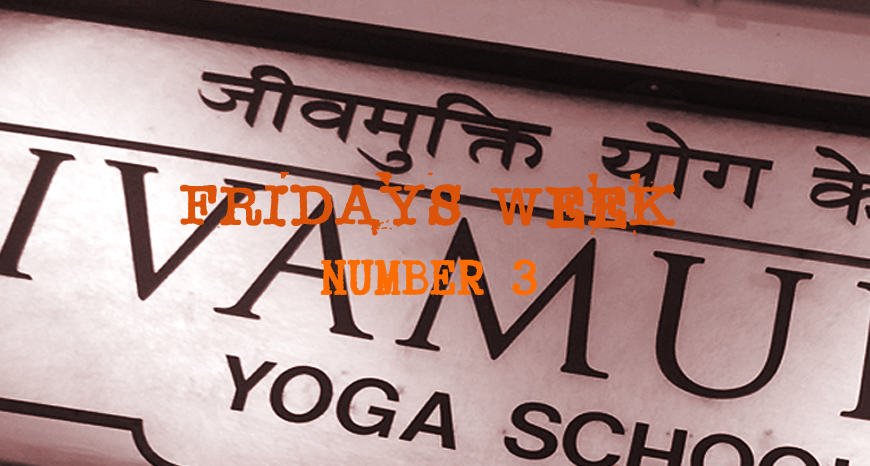 जीवमुक्ति योग के
FRIDAYS WEEK
IVAMU
NUMBER 3
YOGA SCHOO